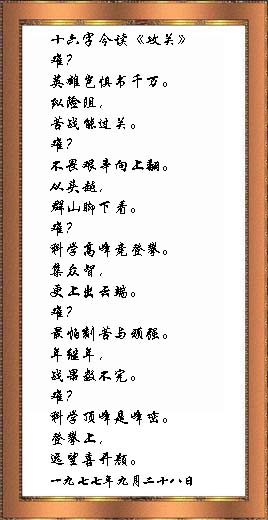 十六字令读《攻关》
难？
英雄岂惧书千万。
似险阻，
苦战能过关。
难？
不畏艰辛向上翻。
从头越，
群山脚下看。
难？
科学高峰竞登攀。
集众智，
更上出云端。
难？
最怕刻苦与顽强。
年继年，
战果数不完。
难？
科学顶峰是峰峦。
登攀上，
远望喜开颜。
一九七七年九月二十八日